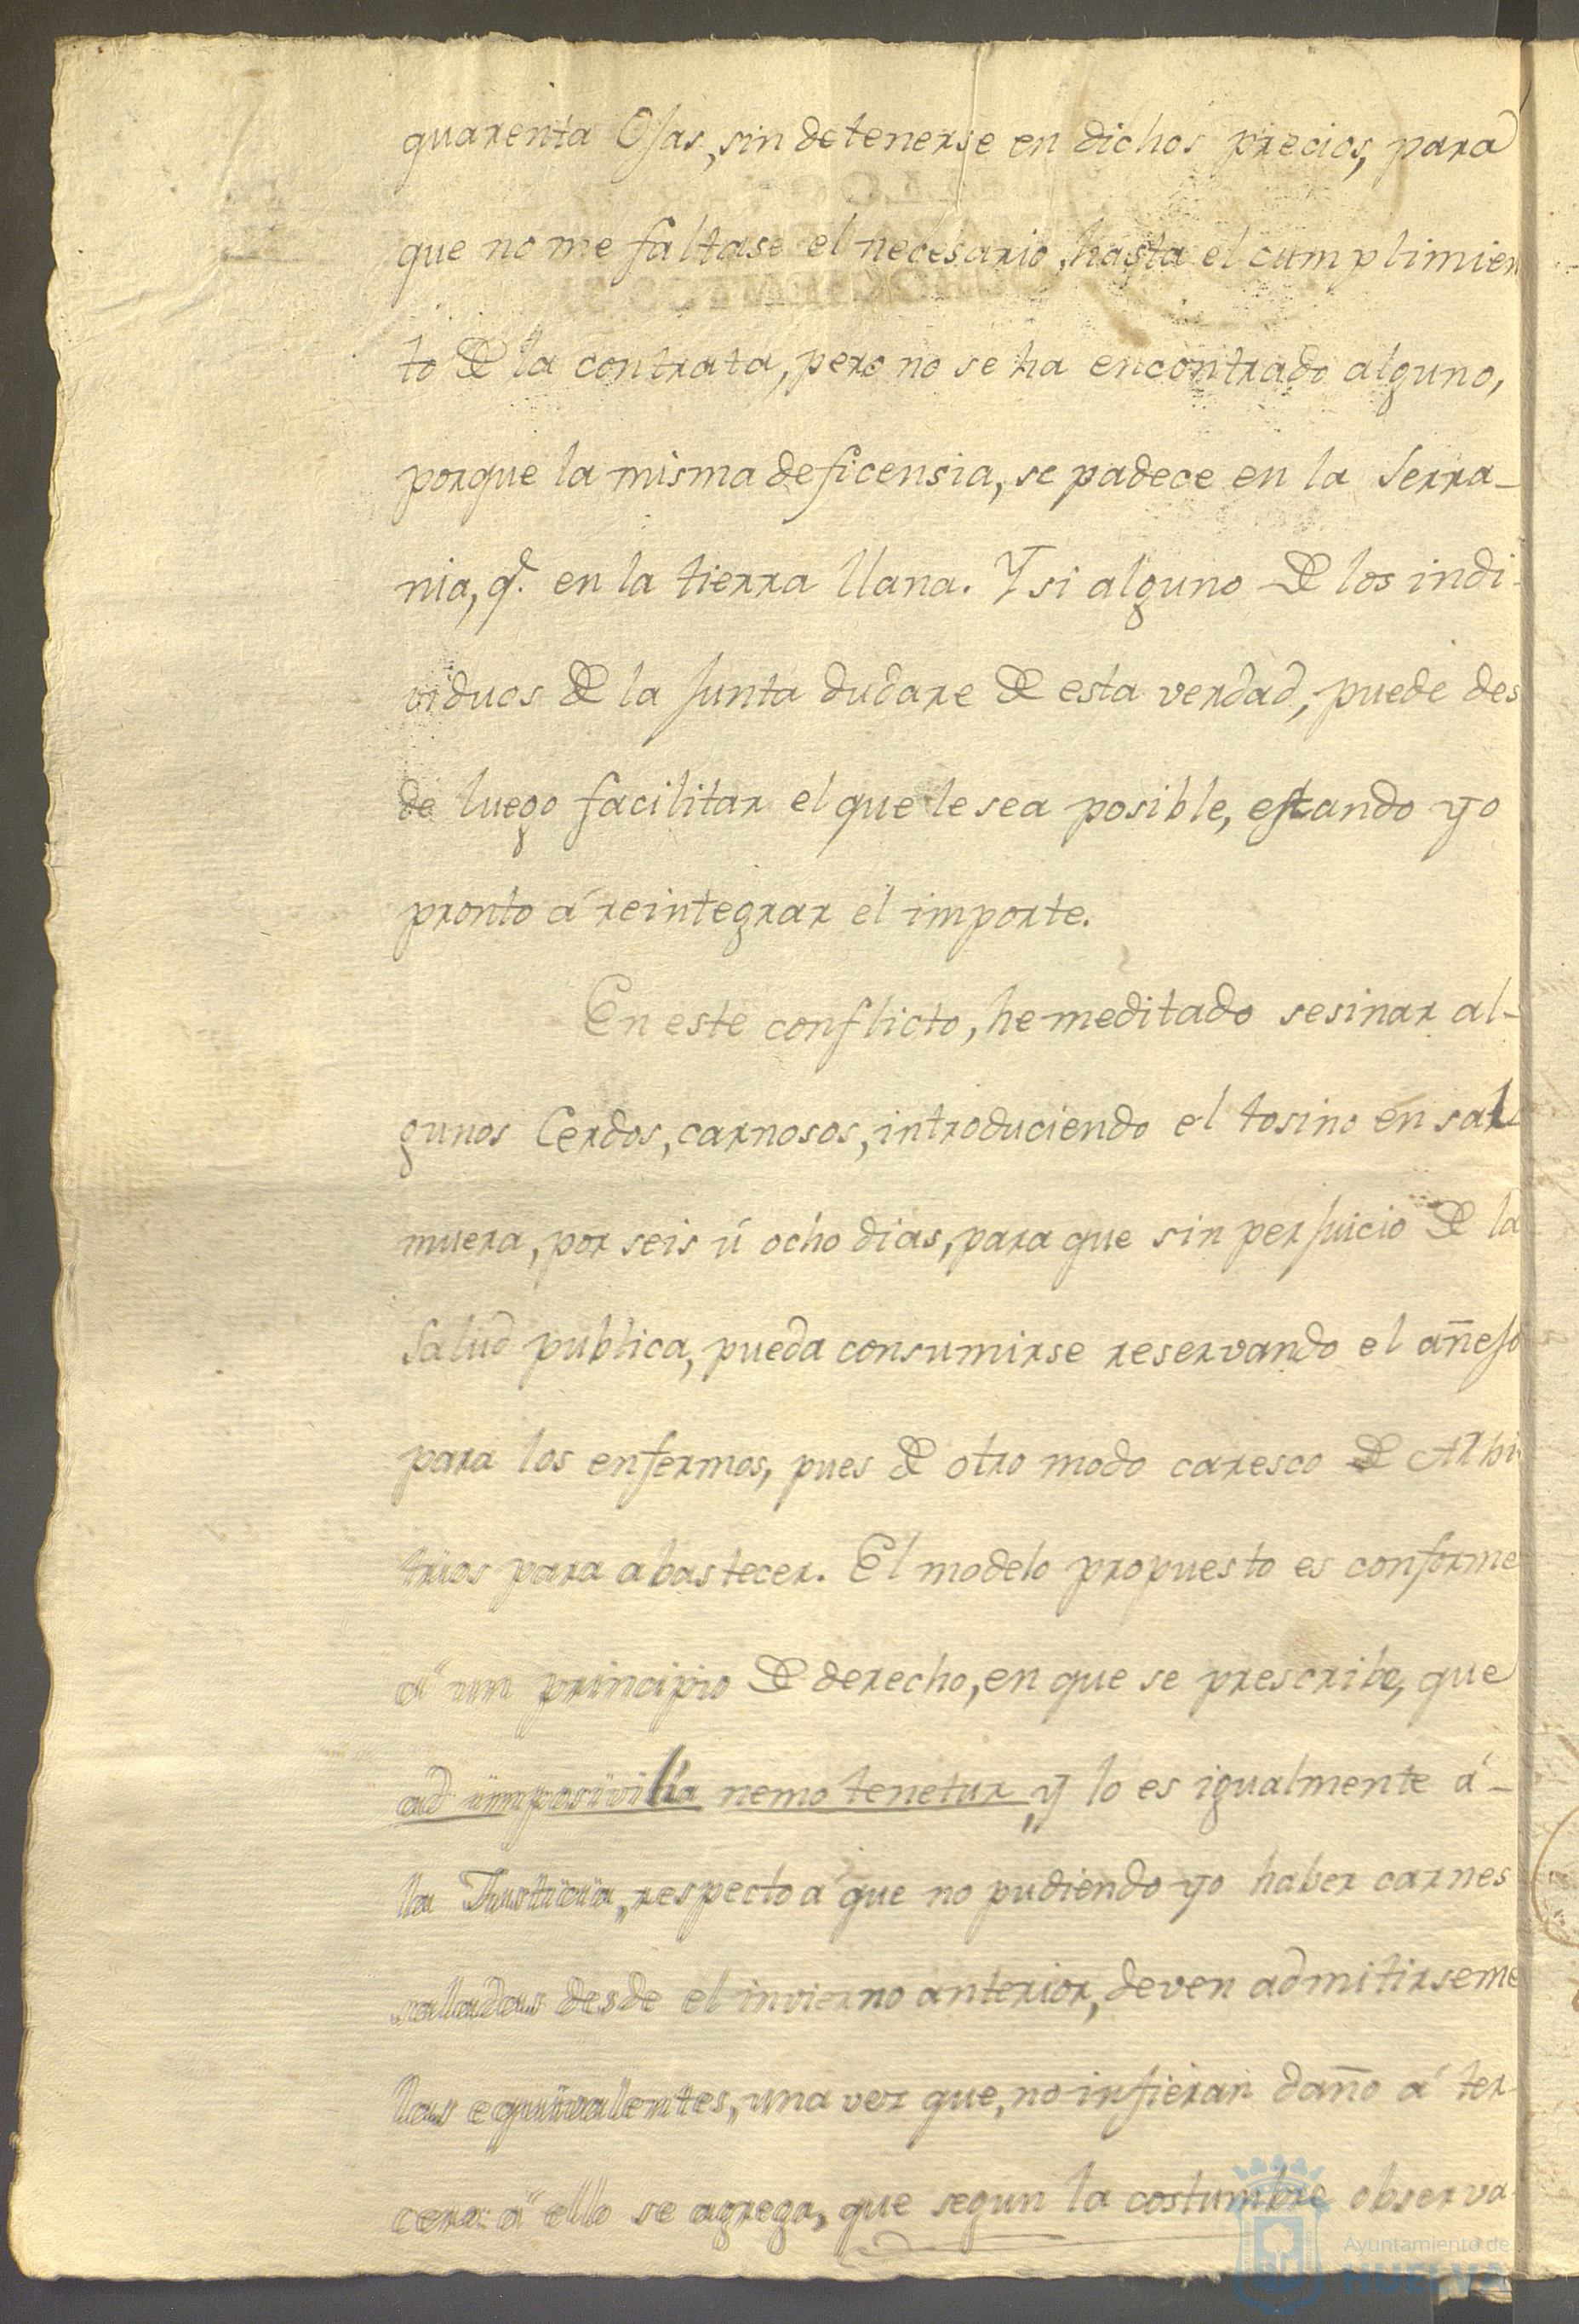 quarenta Ojas, sin detenerse en dichos precios, para
que no me faltase el necesario, hasta el cumplimien
to de la contrata, pero no se ha encontrado alguno,
porque la misma deficensia, se padece en la Serra-
nia, q.e en la tierra llana. Y si alguno de los indi-
viduos de la Junta dudare de esta verdad, puede des
de luego facilitar el que le sea posible, estando yo
pronto á reintegrar el importe.
En este conflicto, he meditado sesinar al-
gunos Cerdos, carnosos, introduciendo el tosino en sal
muera, por seis ú ocho dias, para que sin perjuicio de la
Salud publica, pueda consumirse reservando el añejo
para los enfermos, pues de otro modo caresco de Arbi
trios para abastecer. El modelo propuesto es conforme
á un principio de derecho, en que se prescribe, que
ad imposivilia nemo tenetur, y lo es igualmente á-
la Justicia, respecto á que no pudiendo yo haber carnes
saladas desde el invierno anterior, deven admitirseme
las equivalentes, una vez que, no infieran daño á ter-
cero: á ello se agrega, que segun la costumbre observa-
Ayuntamiento de
HUELVA